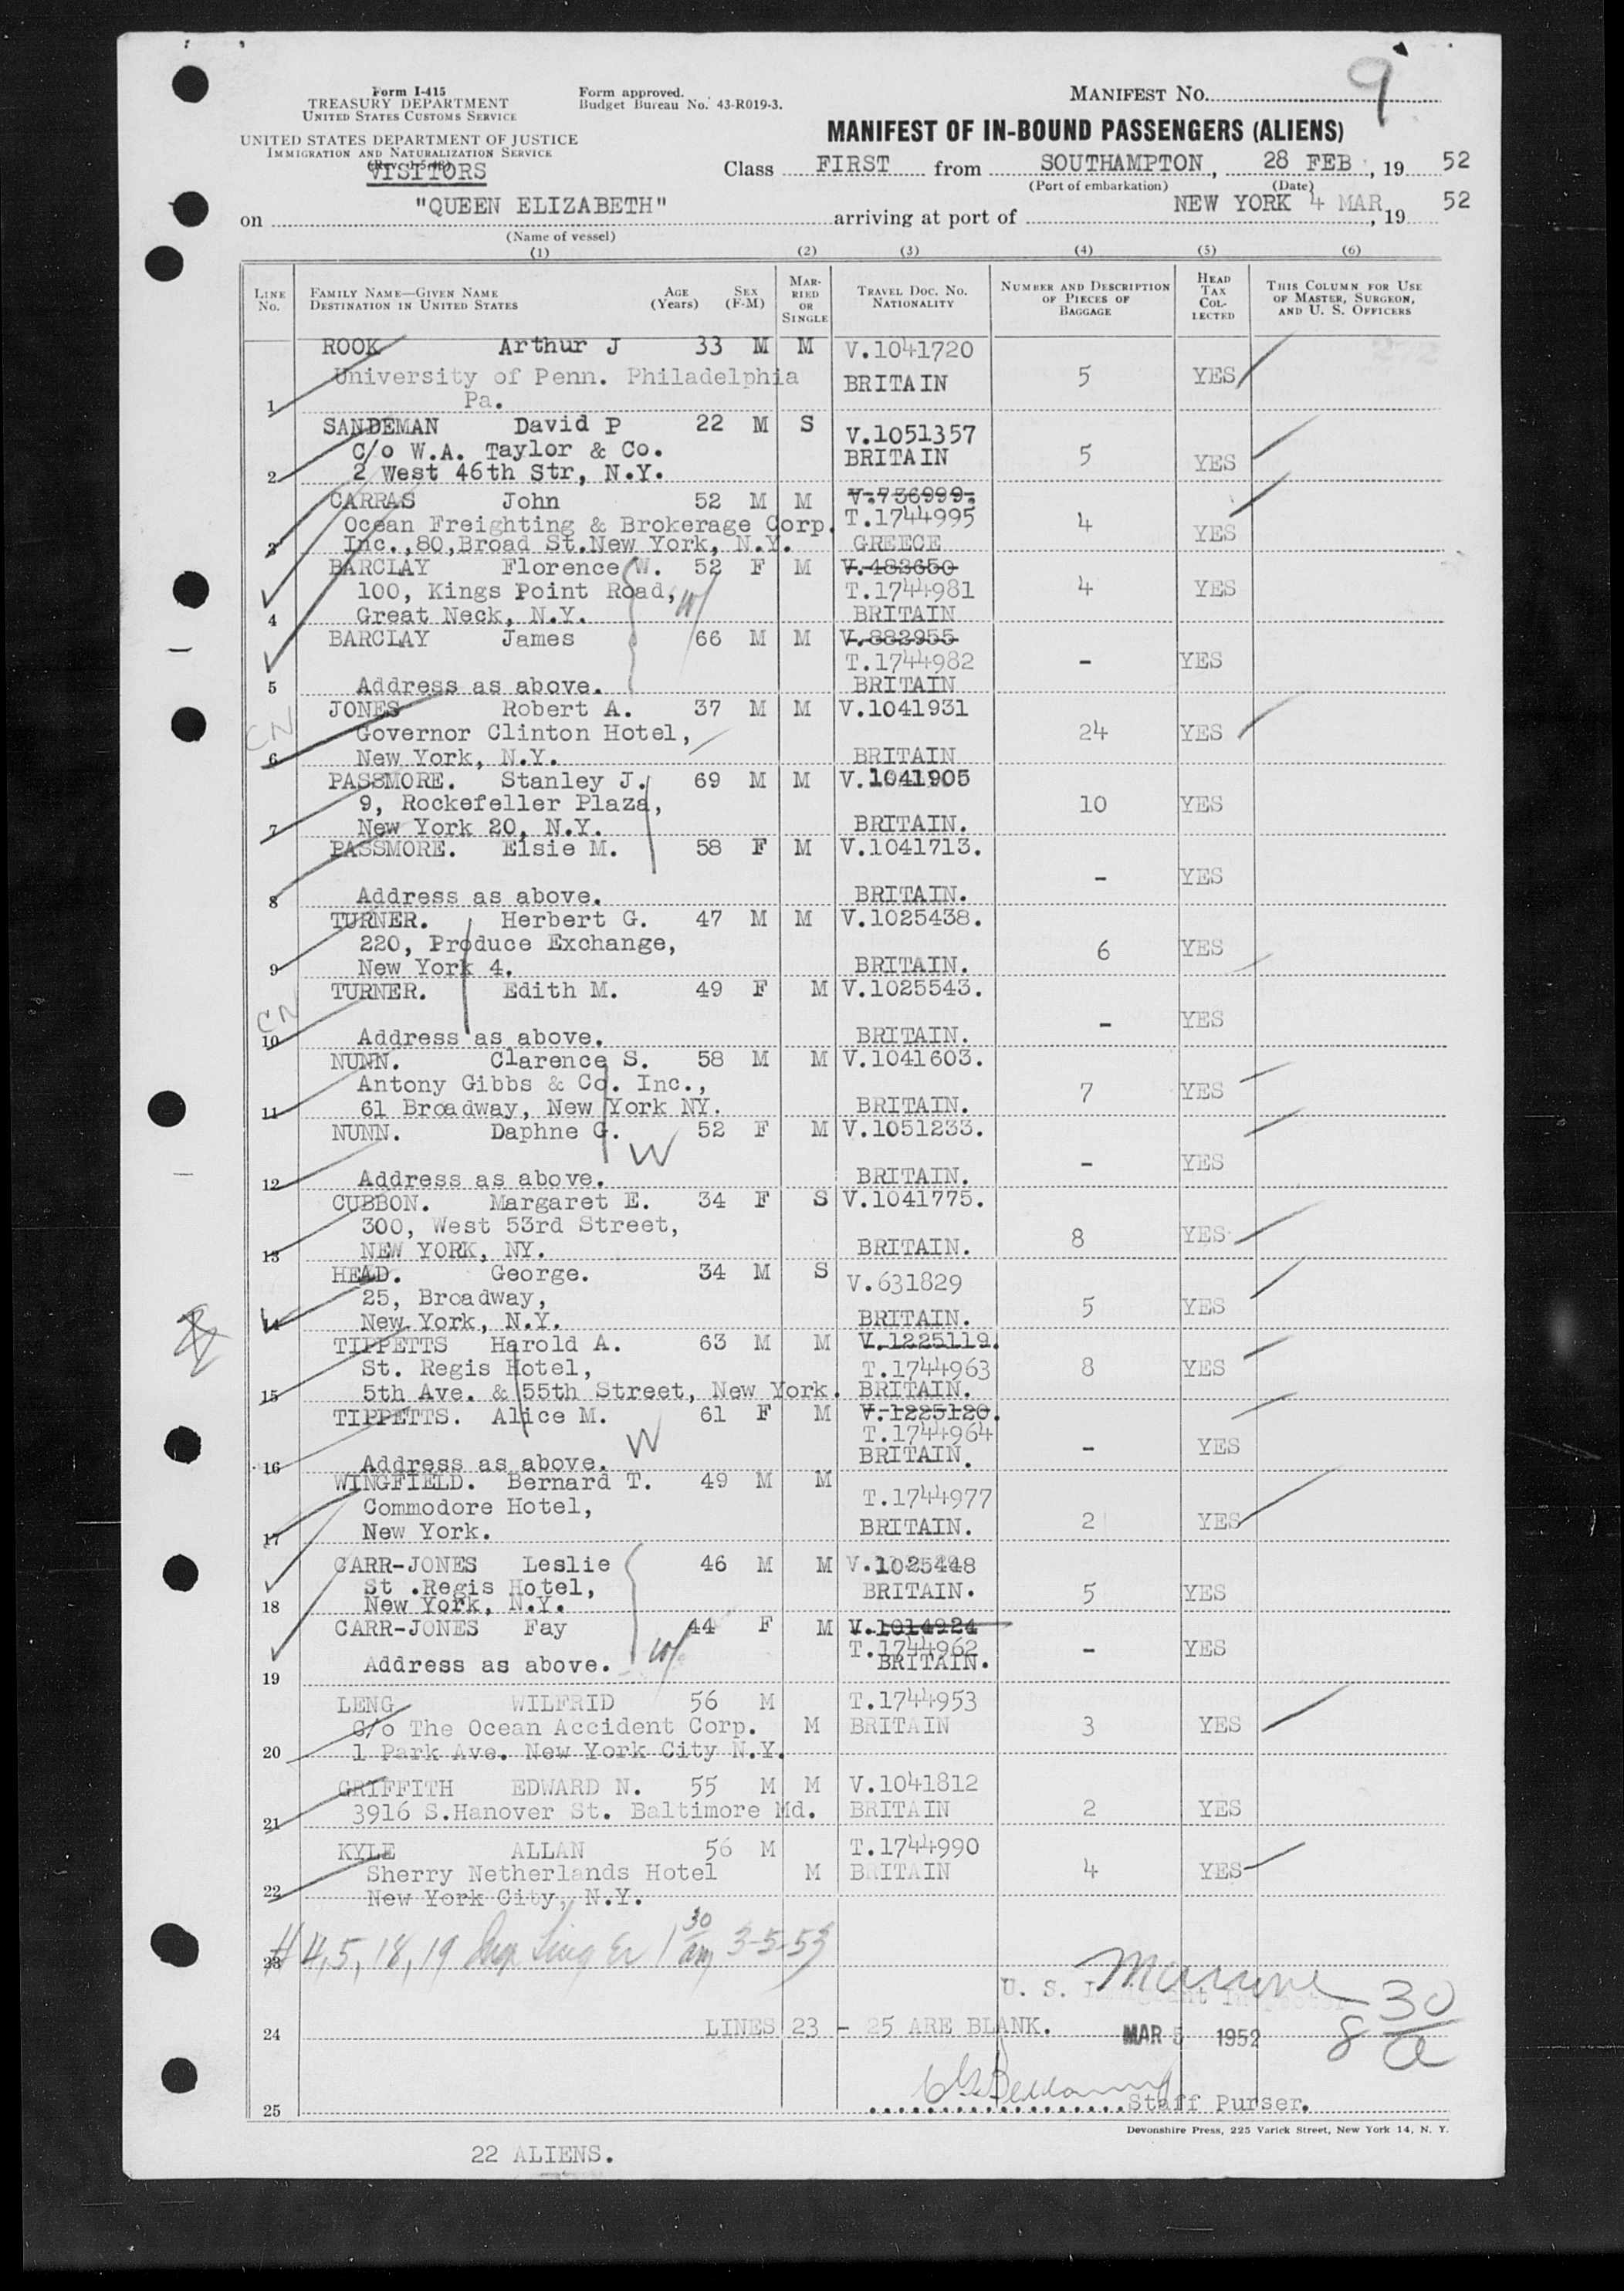 9
Form I-415
TREASURY DEPARTMENT
UNITED STATES CUSTOMS SERVICE
UNITED STATES DEPARTMENT OF JUSTICE
IMMIGRATION AND NATURALIZATION SERVICE
VISITORS
Form approved.
Budget Bureau No. 43-R019-3.
MANIFEST No.
MANIFEST OF IN-BOUND PASSENGERS (ALIENS)
Class FIRST from SOUTHAMPTON, 28 FEB, 19 52
(Port of embarkation) (Date)
on "QUEEN ELIZABETH" arriving at port of NEW YORK 4 MAR, 19 52
(Name of vessel)
(1) (2) (3) (4) (5) (6)
LINE No. FAMILY NAME—GIVEN NAME DESTINATION IN UNITED STATES AGE (Years) SEX (F-M) MARRIED OR SINGLE TRAVEL DOC. NO. NATIONALITY NUMBER AND DESCRIPTION OF PIECES OF BAGGAGE HEAD TAX COLLECTED THIS COLUMN FOR USE OF MASTER, SURGEON, AND U. S. OFFICERS
ROOK Arthur J 33 M M V.1041720
University of Penn. Philadelphia BRITAIN 5 YES
1 Pa.
SANDEMAN David P 22 M S V.1051357
C/o W.A. Taylor & Co. BRITAIN 5 YES
2 2 West 46th Str, N.Y.
CARRAS John 52 M M V.736999.
Ocean Freighting & Brokerage Corp. T.1744995 4 YES
3 Inc.,80,Broad St.New York, N.Y. GREECE
BARCLAY Florence W. 52 F M V.483650
100, Kings Point Road, W/ T.1744981 4 YES
4 Great Neck, N.Y. BRITAIN
BARCLAY James 66 M M V.882955
T.1744982 - YES
5 Address as above. BRITAIN
JONES Robert A. 37 M M V.1041931
CN Governor Clinton Hotel, 24 YES
6 New York, N.Y. BRITAIN
PASSMORE. Stanley J. 69 M M V.1041905
9, Rockefeller Plaza, 10 YES
7 New York 20, N.Y. BRITAIN.
PASSMORE. Elsie M. 58 F M V.1041713.
- YES
8 Address as above. BRITAIN.
TURNER. Herbert G. 47 M M V.1025438.
220, Produce Exchange, 6 YES
9 New York 4. BRITAIN.
TURNER. Edith M. 49 F M V.1025543.
CN - YES
10 Address as above. BRITAIN.
NUNN. Clarence S. 58 M M V.1041603.
Antony Gibbs & Co. Inc., 7 YES
11 61 Broadway, New York NY. BRITAIN.
NUNN. Daphne G. 52 F M V.1051233.
W - YES
12 Address as above. BRITAIN.
CUBBON. Margaret E. 34 F S V.1041775.
300, West 53rd Street, 8 YES
13 NEW YORK, NY. BRITAIN.
HEAD. George. 34 M S V.631829
25, Broadway, 5 YES
14 New York, N.Y. BRITAIN.
TIPPETTS Harold A. 63 M M V.1225119.
St. Regis Hotel, T.1744963 8 YES
15 5th Ave. & 55th Street, New York. BRITAIN.
TIPPETTS. Alice M. 61 F M V.1225120.
W T.1744964 - YES
16 Address as above. BRITAIN.
WINGFIELD. Bernard T. 49 M M T.1744977
Commodore Hotel,
17 New York. BRITAIN. 2 YES
CARR-JONES Leslie 46 M M V.1025448
St .Regis Hotel, BRITAIN. 5 YES
18 New York, N.Y.
CARR-JONES Fay 44 F M V.1014924
W/ T.1744962 - YES
19 Address as above. BRITAIN.
LENG WILFRID 56 M T.1744953
C/o The Ocean Accident Corp. M BRITAIN 3 YES
20 1 Park Ave. New York City N.Y.
GRIFFITH EDWARD N. 55 M M V.1041812
21 3916 S.Hanover St. Baltimore Md. BRITAIN 2 YES
KYLE ALLAN 56 M T.1744990
Sherry Netherlands Hotel M BRITAIN 4 YES
22 New York City, N.Y.
23 # 4, 5, 18, 19 1 30 am 3-5-53
U. S.
24 LINES 23 - 25 ARE BLANK. MAR 5 1952 8 30 a
25 Staff Purser.
Devonshire Press, 225 Varick Street, New York 14, N. Y.
22 ALIENS.